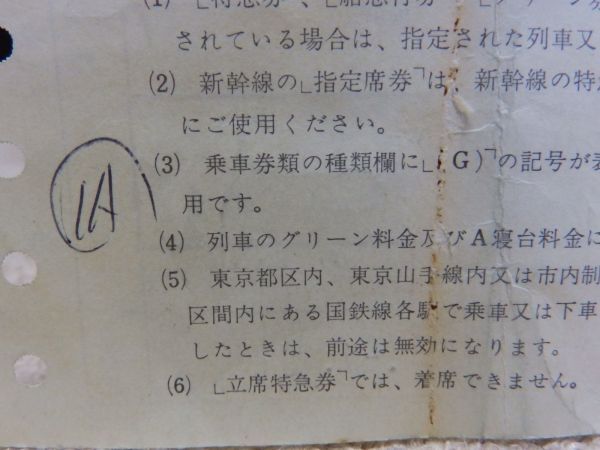 (1) ﹂特急券﹁、﹂船急行券﹁
されている場合は、指定された列車又
(2) 新幹線の﹂指定席券﹁は、新幹線の特
にご使用ください。
(3) 乗車券類の種類欄に﹂(G)﹁の記号が
用です。
1A
(4) 列車のグリーン料金及びA寝台料金に
(5) 東京都区内、東京山手線内又は市内制
区間内にある国鉄線各駅で乗車又は下車
したときは、前途は無効になります。
(6) ﹂立席特急券﹁では、着席できません。